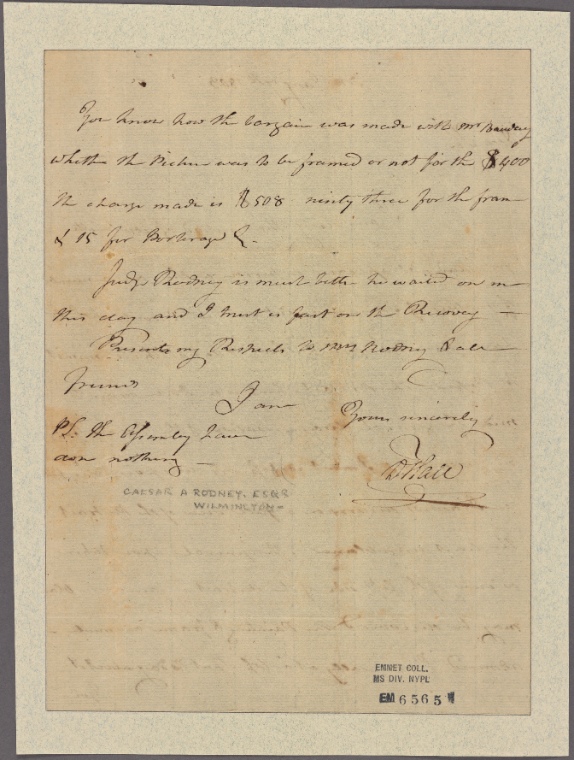 You know how the bargain was made with Mr
whether the Picture was to be framed or not for the $400
the charge made is $508 ninety three for the fram
& 15 for &c.
Judge Rodney is much better he waited on m
this day and I trust is fast on the Recovery —
Presents my Respects to Mrs Rodney & all
friends
I am Yours sincerely
PS. The Assembly have
done nothing —
D Hall
CAESAR A RODNEY. ESQR
WILMINGTON—
EMMET COLL.
MS DIV. NYPL
EM 6565